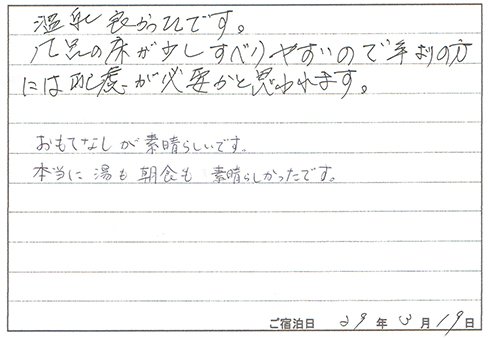 温泉良かったです。
風呂の床が少しすべりやすいので年よりの方
には配慮が必要かと思われます。
おもてなしが素晴らしいです。
本当に湯も朝食も素晴らしかったです。
ご宿泊日 29年3月19日